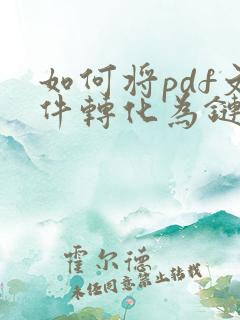 如何将pdf文
件轉化為鏈
霍尔德
未经同意禁止转载